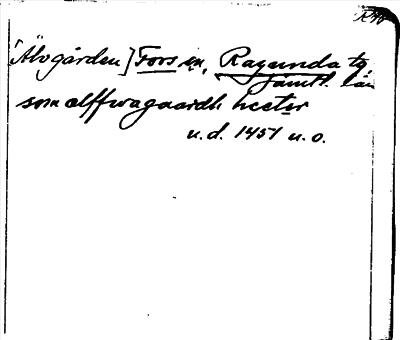 [Älvgården] Fors sn, Ragunda tg
Jämtl. län
som elffwagaardh heeter
u.d. 1451 u.o.